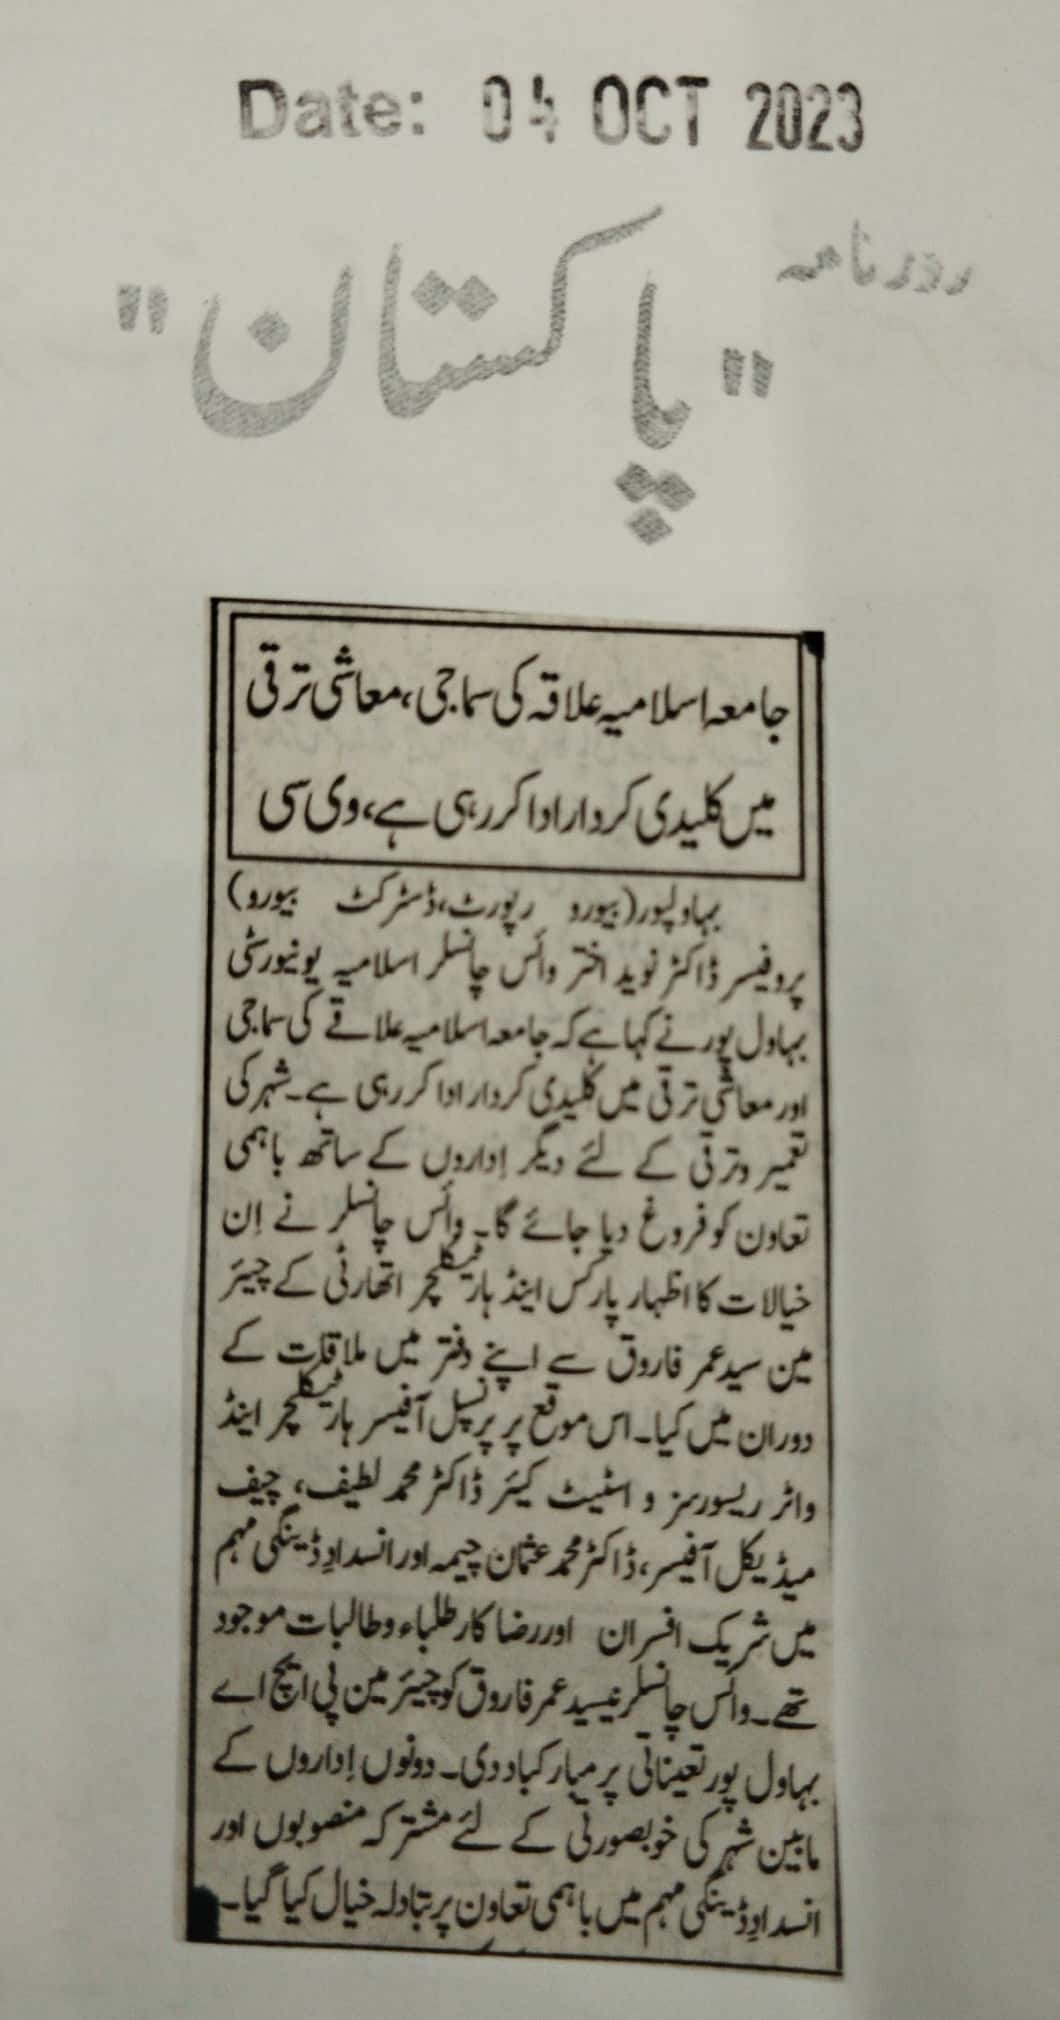 Date: 04 OCT 2023
روزنامہ
"پاکستان"
جامعہ اسلامیہ علاقہ کی سماجی، معاشی ترقی
میں کلیدی کردار ادا کر رہی ہے، وی سی
بہاولپور(بیورو رپورٹ، ڈسٹرکٹ بیورو)
پروفیسر ڈاکٹر نوید اختر وائس چانسلر اسلامیہ یونیورسٹی
بہاول پور نے کہا ہے کہ جامعہ اسلامیہ علاقے کی سماجی
اور معاشی ترقی میں کلیدی کردار ادا کر رہی ہے۔ شہر کی
تعمیر وترقی کے لئے دیگر اِداروں کے ساتھ باہمی
تعاون کو فروغ دیا جائے گا۔ وائس چانسلر نے اِن
خیالات کا اظہار پارکس اینڈ ہارٹیکلچر اتھارٹی کے چیئر
مین سید عمر فاروق سے اپنے دفتر میں ملاقات کے
دوران میں کیا۔ اس موقع پر پرنسپل آفیسر ہارٹیکلچر اینڈ
واٹر ریسورسز و اسٹیٹ کیئر ڈاکٹر محمد لطیف، چیف
میڈیکل آفیسر، ڈاکٹر محمد عثمان چیمہ اور انسدادِ ڈینگی مہم
میں شریک افسران اور رضا کار طلباء و طالبات موجود
تھے۔ وائس چانسلر نیسید عمر فاروق کو چیئر مین پی ایچ اے
بہاول پور تعیناتی پر مبارکباد دی۔ دونوں اِداروں کے
مابین شہر کی خوبصورتی کے لئے مشترکہ منصوبوں اور
انسدادِ ڈینگی مہم میں باہمی تعاون پر تبادلہ خیال کیا گیا۔